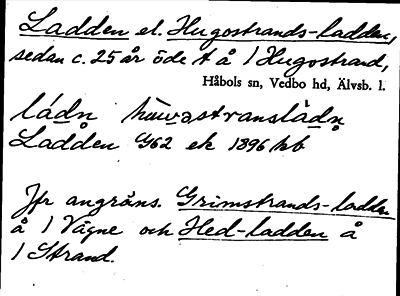 Ladden el. Hugostrands-ladden,
sedan c. 25 år öde t å 1 Hugostrand,
Håbols sn, Vedbo hd, Älvsb. l.
ládn̥ hùwastranslàdn̥
Ladden G62 ek 1896 hb
Jfr angräns. Grimstrands-ladden
å 1 Vägne och Hed-ladden å
1 Strand.